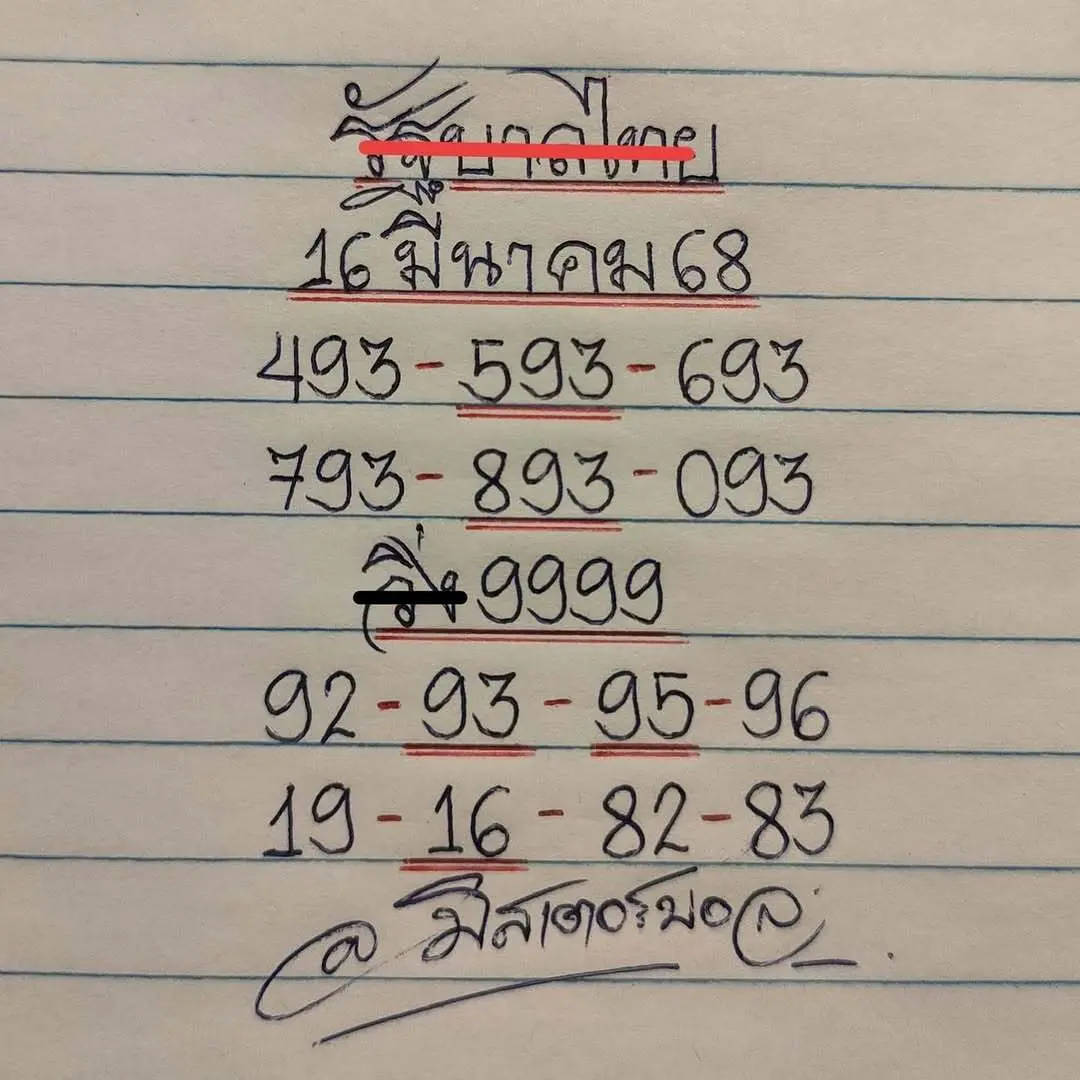 รัฐบาลไทย
16 มีนาคม 68
493 - 593 - 693
793 - 893 - 093
วิ่ง 9999
92 - 93 - 95 - 96
19 - 16 - 82 - 83
@ มิสเตอร์บอล